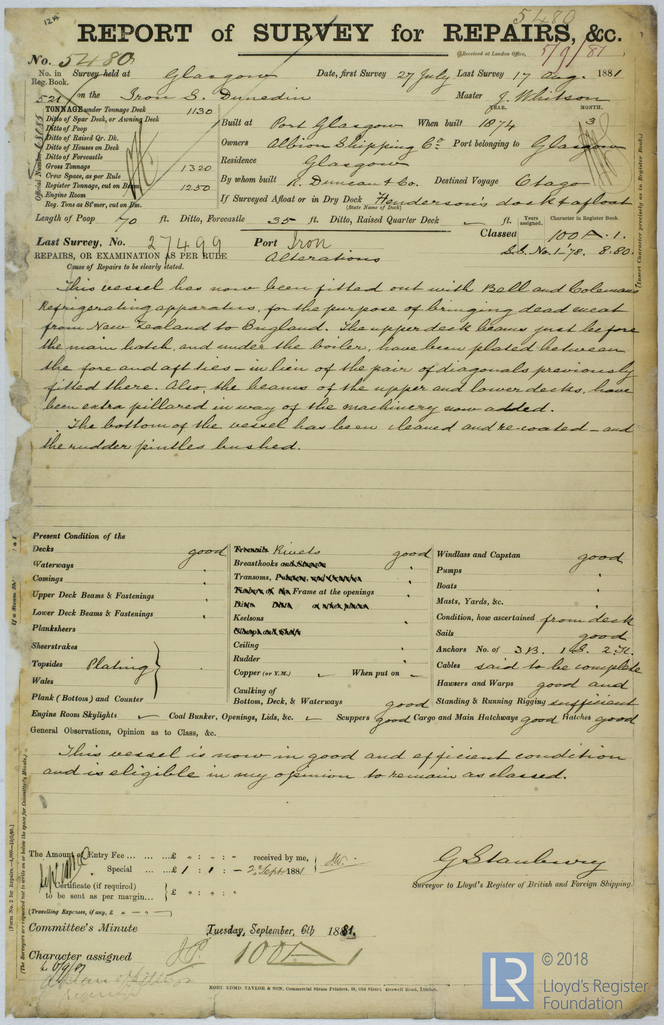 5480
REPORT of SURVEY for REPAIRS, &c.
No. 5480
(Received at London Office, 5/9/81
No. in Survey held at Glasgow Date, first Survey 27 July Last Survey 17 Aug. 1881
Reg. Book.
521 on the Iron S. Dunedin Master J. Whitson
TONNAGE under Tonnage Deck 1130
Ditto of Spar Deck, or Awning Deck
Ditto of Poop
Ditto of Raised Qr. Dk.
Ditto of Houses on Deck
Ditto of Forecastle
Gross Tonnage 1320
Crew Space, as per Rule
Register Tonnage, cut on Beam 1250
Engine Room
Reg. Tons as St'mer, cut on Bm.
Official Number
YEAR. MONTH.
Built at Port Glasgow When built 1874 3
Owners Albion Shipping Co. Port belonging to Glasgow
Residence Glasgow
By whom built R. Duncan & Co. Destined Voyage Otago
If Surveyed Afloat or in Dry Dock Henderson's dock & afloat
(State Name of Dock)
Length of Poop 70 ft. Ditto, Forecastle 35 ft. Ditto, Raised Quarter Deck ft.
Years assigned. Character in Register Book.
Last Survey, No. 27499 Port Iron
Classed 100 A.1.
S.S. No.1-'78. 8.80
REPAIRS, OR EXAMINATION AS PER RULE Alterations
Cause of Repairs to be clearly stated.
(Insert Character precisely as in Register Book.)
This vessel has now been fitted out with Bell and Coleman's
Refrigerating apparatus, for the purpose of bringing dead meat
from New Zealand to England. The upper deck beams just before
the main hatch, and under the boiler, have been plated between
the fore and aft ties – in lieu of the pair of diagonals previously
fitted there. Also, the beams of the upper and lower decks, have
been extra pillared in way of the machinery now added.
The bottom of the vessel has been cleaned and re-coated – and
the rudder pintles bushed.
Present Condition of the
Decks good
Waterways "
Comings "
Upper Deck Beams & Fastenings "
Lower Deck Beams & Fastenings "
Planksheers
Sheerstrakes
Topsides Plating "
Wales
Plank (Bottom) and Counter
Treenails Rivets good
Breasthooks "
Transoms, "
Frame at the openings "
Keelsons "
Ceiling "
Rudder "
Copper (or Y.M.) When put on
Caulking of
Bottom, Deck, & Waterways good
Windlass and Capstan good
Pumps "
Boats "
Masts, Yards, &c. "
Condition, how ascertained from deck
Sails good
Anchors No. of 3 B. 1 S. 2 K.
Cables said to be complete
Hawsers and Warps good and
Standing & Running Rigging sufficient
Engine Room Skylights Coal Bunker, Openings, Lids, &c. Scuppers good Cargo and Main Hatchways good Hatches good
General Observations, Opinion as to Class, &c.
This vessel is now in good and efficient condition
and is eligible in my opinion to remain as classed.
The Amount of Entry Fee ... ... ...£ " : " : " received by me,
Special ... ...£ 1 : 1 : – 2 Sept. 1881
Certificate (if required)
to be sent as per margin... £ " : " : "
(Travelling Expenses, if any, £ )
G Stanbury
Surveyor to Lloyd's Register of British and Foreign Shipping.
Committee's Minute Tuesday, September, 6th 1881.
Character assigned 100 A 1
ROBT. EDMD. TAYLOR & SON, Commercial Steam Printers, 19, Old Street, Goswell Road, London.
LR
© 2018
Lloyd's Register
Foundation